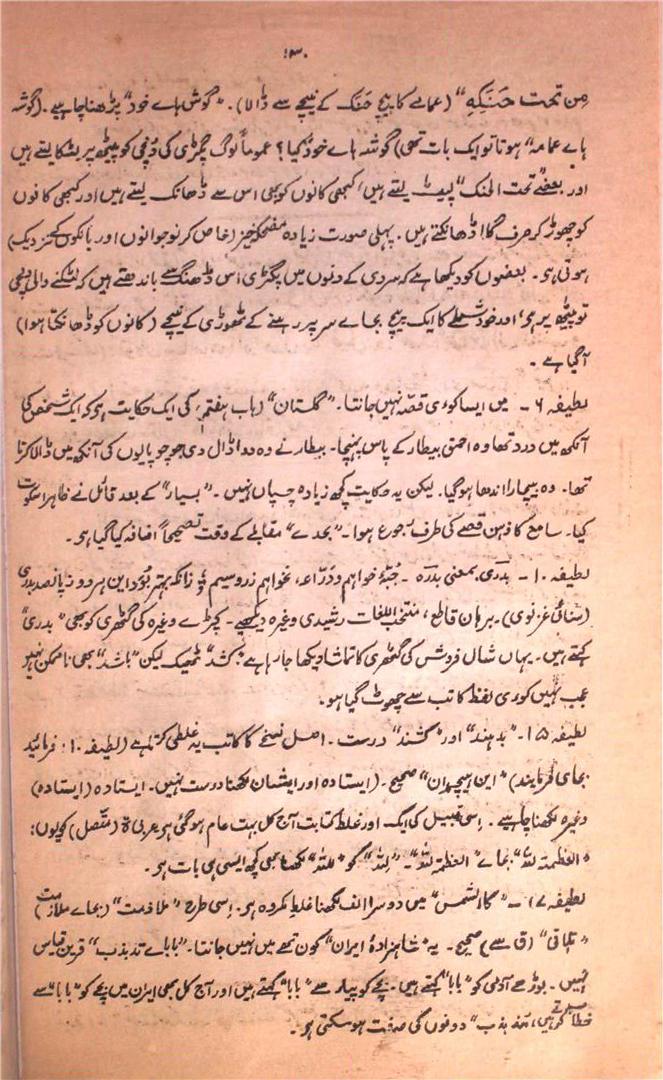 ۱۳۰
مِن تحت حَنَکِہٖ" (عمامے کا پیچ حَنَک کے نیچے سے ڈالا). "گوش ہاے خود" پڑھنا چاہیے. (گوشہ
ہاے عمامہ" ہوتا تو ایک بات تھی) گوشہ ہاے خود کیا؟ عموماً لوگ پگڑی کی دُمچی کو پیٹھ پر لٹکا لیتے ہیں
اور بعضے "تحت الحنک" لپیٹ لیتے ہیں، کبھی کانوں کو بھی اس سے ڈھانک لیتے ہیں اور کبھی کانوں
کو چھوڑ کر صرف گلا ڈھانکتے ہیں. پہلی صورت زیادہ مضحکہ خیز (خاص کر نوجوانوں اور بانکوں کے نزدیک)
ہوتی ہو. بعضوں کو دیکھا ہے کہ سردی کے دنوں میں پگڑی اس ڈھنگ سے باندھتے ہیں کہ لٹکنے والی دمچی
تو پیٹھ پر ہو، اور خود شملے کا ایک پیچ بجاے سر پر رہنے کے ٹھوڑی کے نیچے (کانوں کو ڈھانکتا ہوا)
آگیا ہے.
لطیفہ ۶ - میں ایسا کوئی قصّہ نہیں جانتا. "گلستان" (باب ہفتم) کی ایک حکایت ہو کہ ایک شخص کی
آنکھ میں درد تھا وہ احمق بیطار کے پاس پہنچا. بیطار نے وہ دوا ڈال دی جو چوپایوں کی آنکھ میں ڈالا کرتا
تھا. وہ بیچارا اندھا ہوگیا. لیکن یہ حکایت کچھ زیادہ چسپاں نہیں. "بسیار" کے بعد قائل نے ظاہرا سکوت
کیا. سامع کا ذہن قصے کی طرف رجوع ہوا. "بعدے" مقابلے کے وقت تصحیحاً اضافہ کیا گیا ہو.
لطیفہ ۱۰ - بدری بمعنی بدرہ. جُبّہ خواہم و دَرّاعہ، نخواہم زر و سیم ؛ زانکہ بہتر بُوَد این ہر دو ز پانصد بدری
(سنائی غزنوی). برہان قاطع، منتخب اللغات رشیدی وغیرہ دیکھیے. کپڑے وغیرہ کی گٹھری کو بھی "بدری"
کہتے ہیں. یہاں شال فروش کی گٹھری کا تماشا دیکھا جا رہا ہے. "کشد" ٹھیک لیکن "باشد" بھی ناممکن نہیں
عجب نہیں کوئی لفظ کاتب سے چھوٹ گیا ہو.
لطیفہ ۱۵ - "بدہند" اور "کُشند" درست. اصل نسخے کا کاتب یہ غلطی کرتا ہے (لطیفہ ۱۰: فرمائید
بجاے فرمایند) "این ہیچمدان" صحیح. (ایستادہ اور ایشان لکھنا درست نہیں. ایستادہ (ایستادہ)
وغیرہ لکھنا چاہیے. اسی قبیل کی ایک اور غلط کتابت آج کل بہت عام ہوگئی ہو عربی ۃ (متّصل) کو یوں:
"العظمتہ للہ" بجاے "العظمۃ للہ". "لِلّٰہ" کو "للہ" لکھنا بھی کچھ ایسی ہی بات ہو.
لطیفہ ۱۷ - "کاالشمس" میں دوسرا الف لکھنا غلط مکروہ ہو. اسی طرح "ملاذمت" (بجاے ملازمت)
"تلاقی" (ق سے) صحیح. یہ "شاہزادۂ ایران" کون تھے میں نہیں جانتا. "باباے تذبذب" قرین قیاس
نہیں. بوڑھے آدمی کو "بابا" کہتے ہیں. بچے کو پیار سے "بابا" کہتے ہیں اور آج کل بھی ایران میں بچے کو "بابا" سے
خطاب کرتے ہیں، "مذبذب" دونوں کی صفت ہوسکتی ہو.